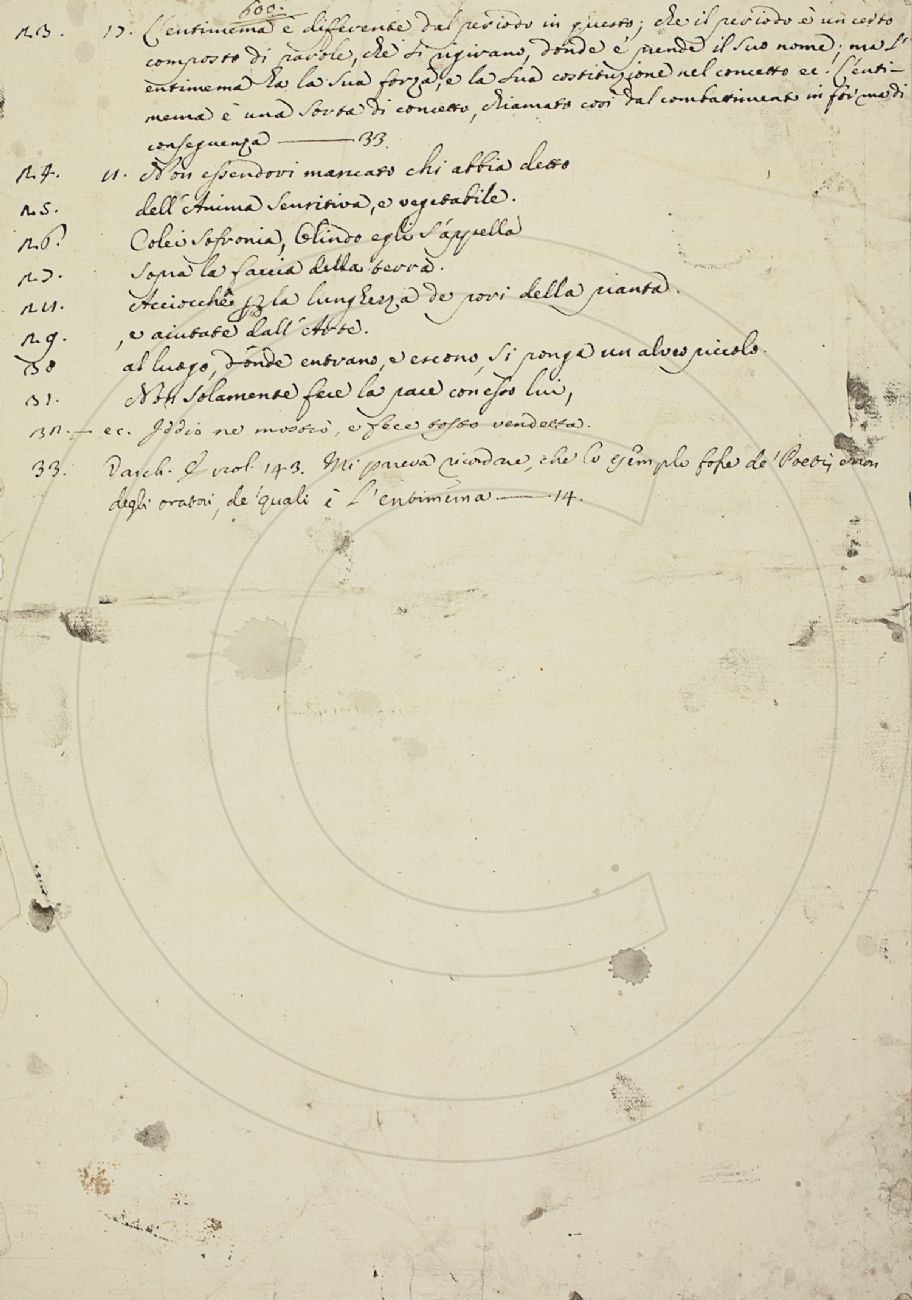 600.
23. 17. L'entimema è differente dal periodo in questo; che il periodo è un certo
composto di parole, che si rigirano, donde e' prende il suo nome; ma l'
entimema ha la sua forza, e la sua costituzione nel concetto ec. L'enti-
mema è una sorta di concetto, chiamato così dal combattimento in forma di
conseguenza —— 33.
24. Non essendovi mancato chi abbia detto
25. dell'Anima sensitiva, e vegetabile.
26. Colei Sofronia, Olindo egli s'appella
27. sopra la faccia della terra.
Acciocchè la lunghezza de pori della pianta.
29. , e aiutate dall'Arte.
30 al luogo, donde entrano, e escono, si ponga un alveo piccolo.
31. Non solamente fece la pace con esso lui,
32. — ec. Iddio ne mostrò, e fece tosto vendetta.
33. Varch. Ercol. 143. Mi pareva ricordare, che lo esemplo fosse de' Poeti, e non
degli oratori, de' quali è l'entimema —— 14.